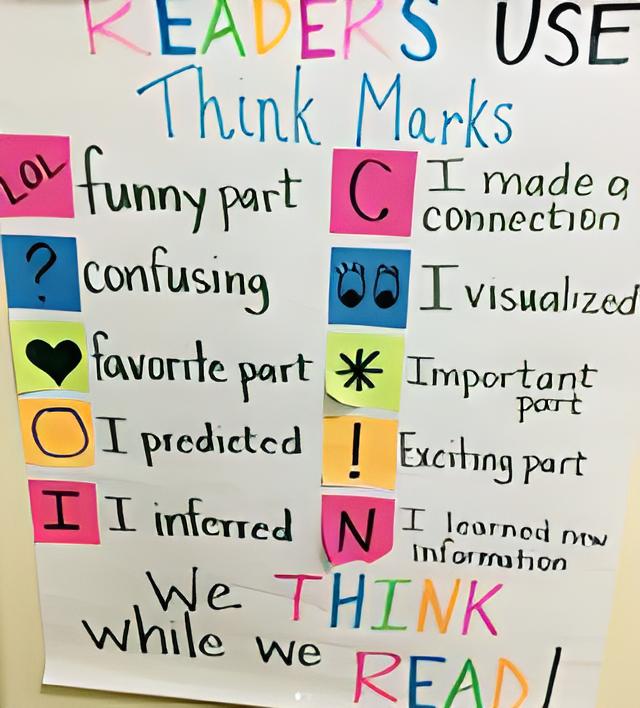 READERS USE
Think Marks
LOL funny part
C I made a
connection
? confusing
I visualized
♥ favorite part
* Important
part
O I predicted
! Exciting part
I I inferred
N I learned new
information
We THINK
while we
READ!